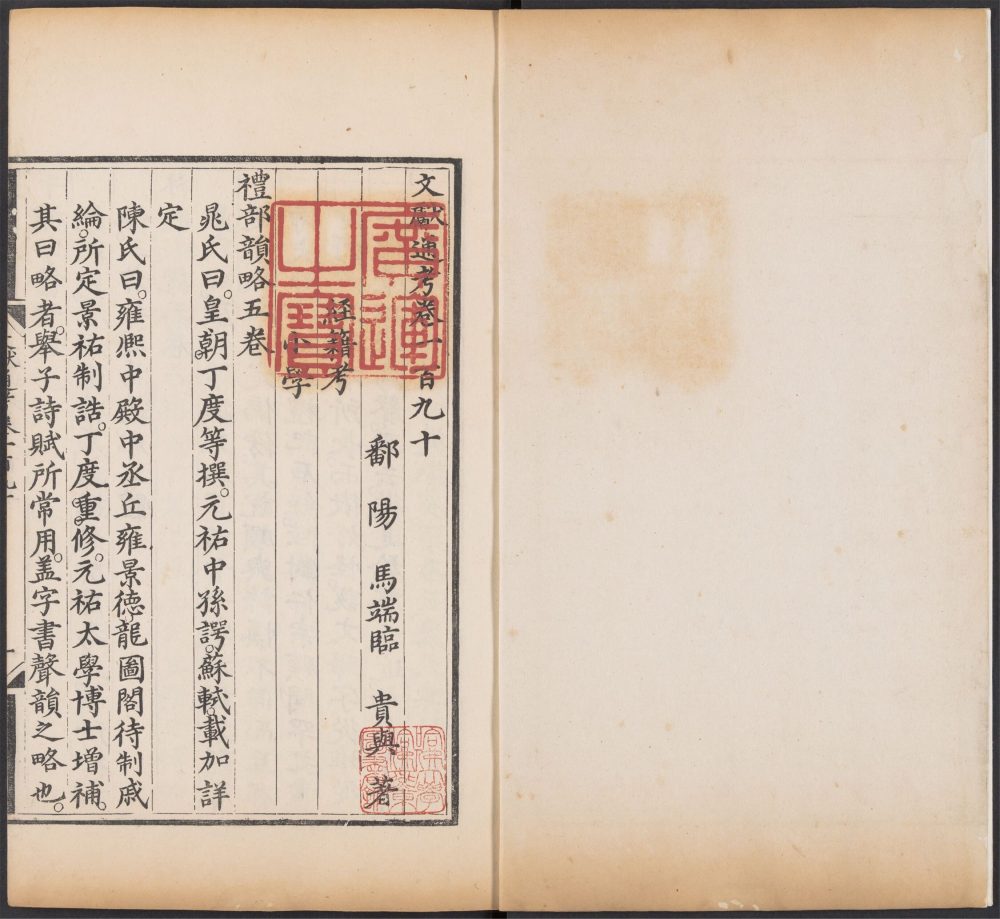 文獻通考卷一百九十
鄱陽馬端臨貴與著
經籍考
小學
禮部韻略五卷
晁氏曰。皇朝。丁度等撰。元祐中孫諤。蘇軾。載加詳
定
陳氏曰。雍熙中殿中丞丘雍景德龍圖閣待制戚
綸。所定景祐制誥。丁度重修。元祐太學博士增補。
其曰略者。舉子詩賦所常用。盖字書聲韻之略也。
廣運之寶